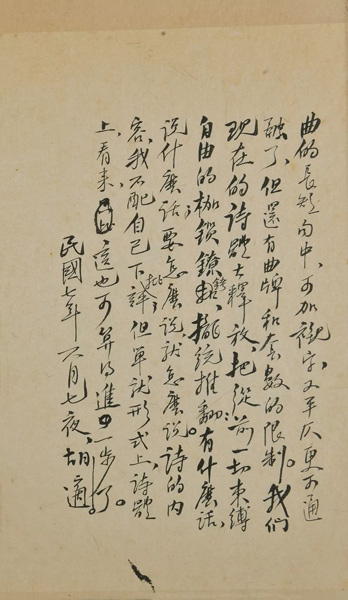 曲的長短句中，可加襯字，又平仄更可通
融了，但還有曲牌和套數的限制。我們
現在的詩體大釋放，把從前一切束縛
自由的枷鎖鐐銬，攏統推翻：有什麼話，
說什麼話；要怎麼說就怎麼說。詩的內
容，我不配自己下批評，但單就形式上詩體
上看來，這也可算得進一步了。
民國七年六月七夜，胡適。